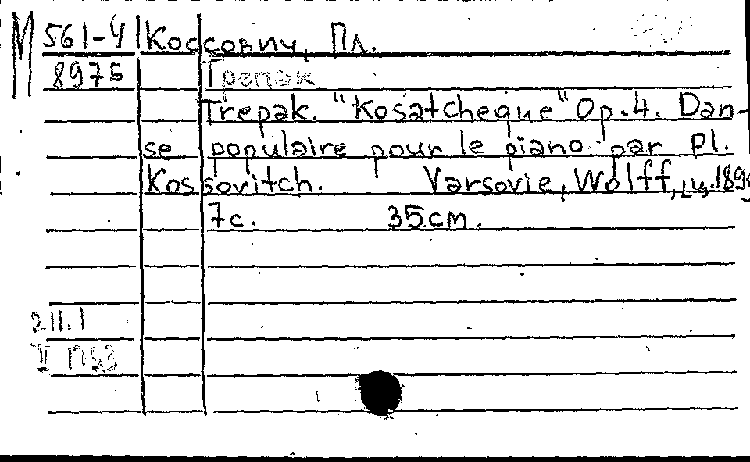 М 561-4 Коссович, Пл.
8975 Трепак
Trepak. "Kosatcheque" Op.4. Dan-
se populaire pour le piano par Pl.
Kossovitch. Varsovie, Wolff, ц.189
7с. 35см.
2.11.1
V